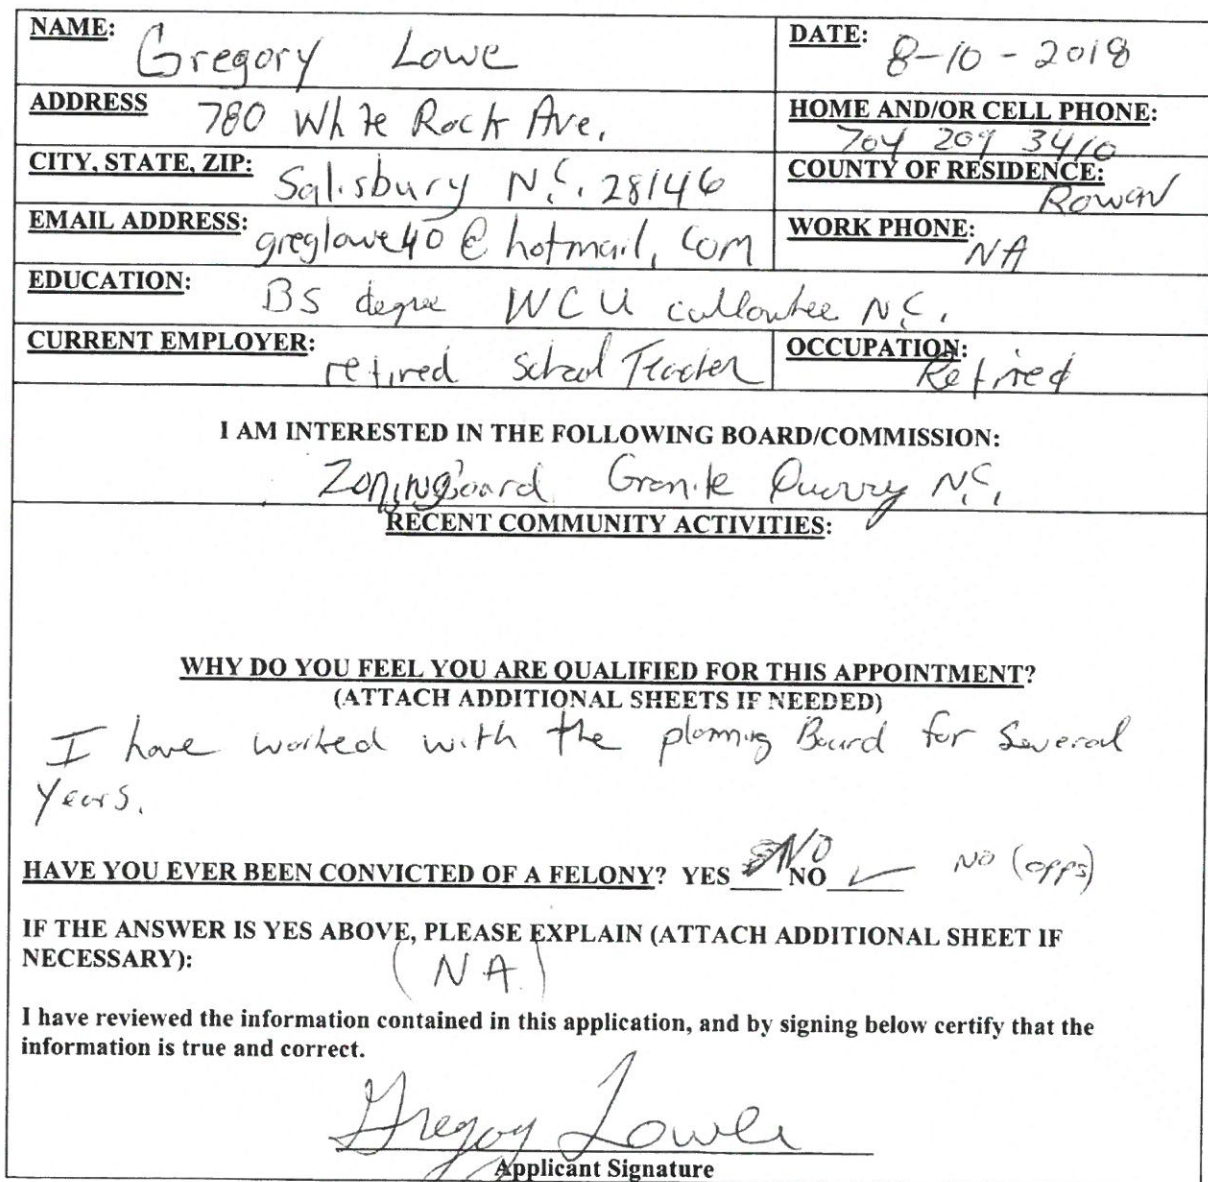 NAME: Gregory Lowe
DATE: 8-10-2018
ADDRESS 780 White Rock Ave.
HOME AND/OR CELL PHONE:
704 209 3410
CITY, STATE, ZIP: Salisbury N.C. 28146
COUNTY OF RESIDENCE:
Rowan
EMAIL ADDRESS: greglowe40@hotmail.com
WORK PHONE:
NA
EDUCATION: BS degree WCU cullowhee N.C.
CURRENT EMPLOYER: retired School Teacher
OCCUPATION:
Retired
I AM INTERESTED IN THE FOLLOWING BOARD/COMMISSION:
Zoning Board Granite Quarry N.C.
RECENT COMMUNITY ACTIVITIES:
WHY DO YOU FEEL YOU ARE QUALIFIED FOR THIS APPOINTMENT?
(ATTACH ADDITIONAL SHEETS IF NEEDED)
I have worked with the planning Board for Several
Years.
HAVE YOU EVER BEEN CONVICTED OF A FELONY? YES NO NO ✓ NO (opps)
IF THE ANSWER IS YES ABOVE, PLEASE EXPLAIN (ATTACH ADDITIONAL SHEET IF
NECESSARY): (NA)
I have reviewed the information contained in this application, and by signing below certify that the
information is true and correct.
Gregory Lowe
Applicant Signature